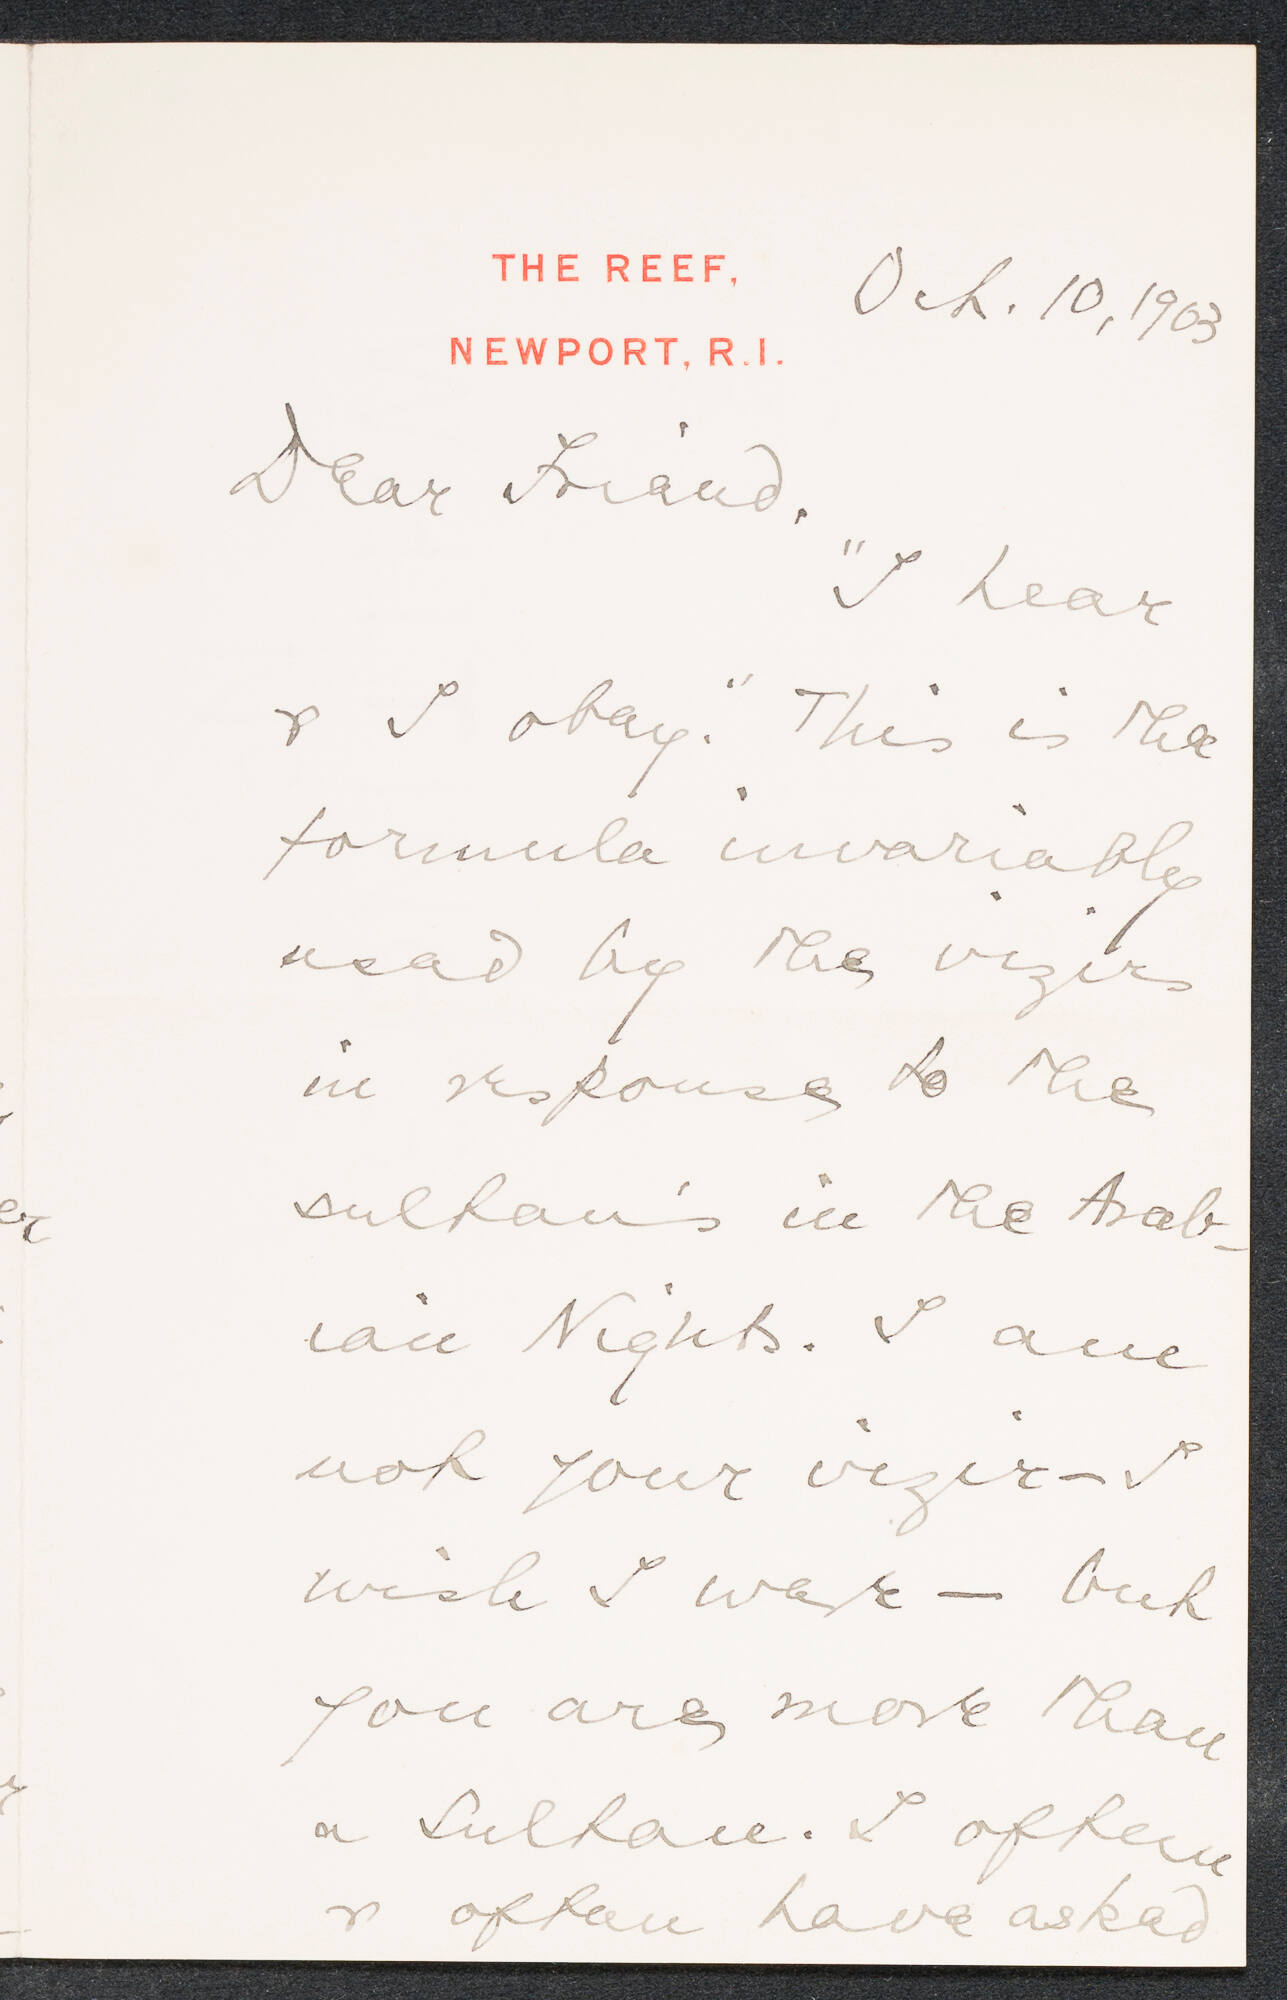 THE REEF,
NEWPORT, R.I.
Oct. 10, 1903
Dear Friend.
"I hear
& I obey." This is the
formula invariably
used by the vizirs
in response to the
sultan's in the Arab-
ian Nights. I am
not your vizir — I
wish I were — but
you are more than
a Sultan. I often
& often have asked